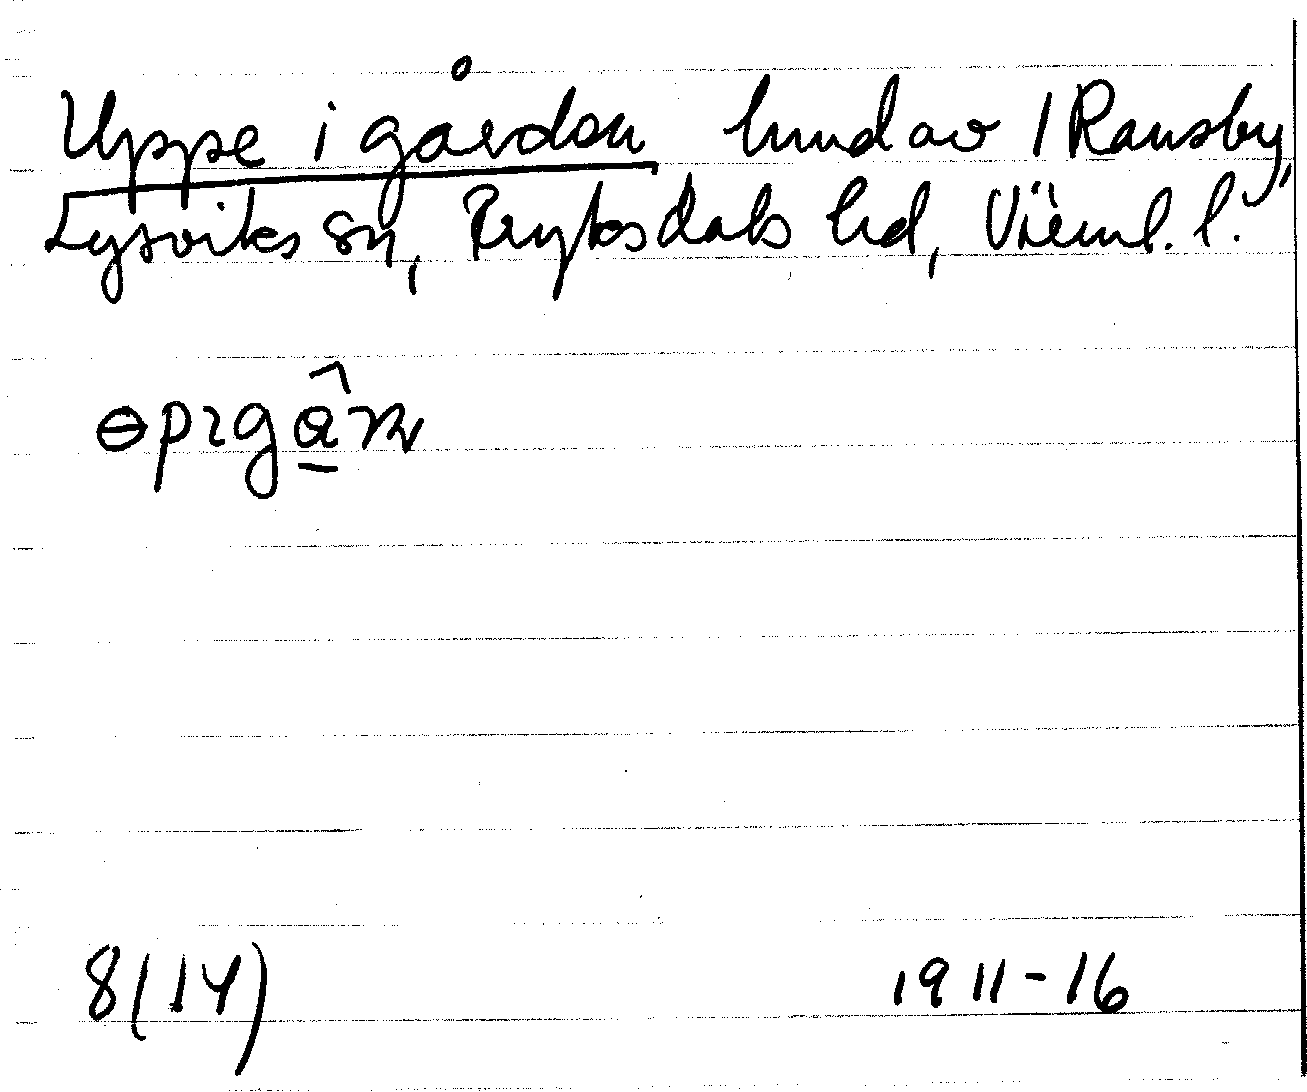 Uppe i gården hmd av 1 Ransby,
Lysviks sn, Fryksdals hd, Värml. l.
8(14) 1911-16